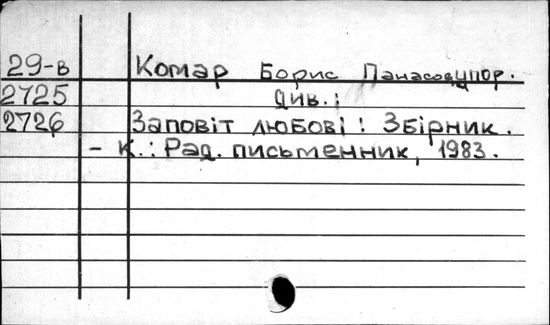 29-в Комар Борис упор.
2725 Див.:
2726 Заповіт любові : Збірник.
– К.: Рад. письменник, 1983.